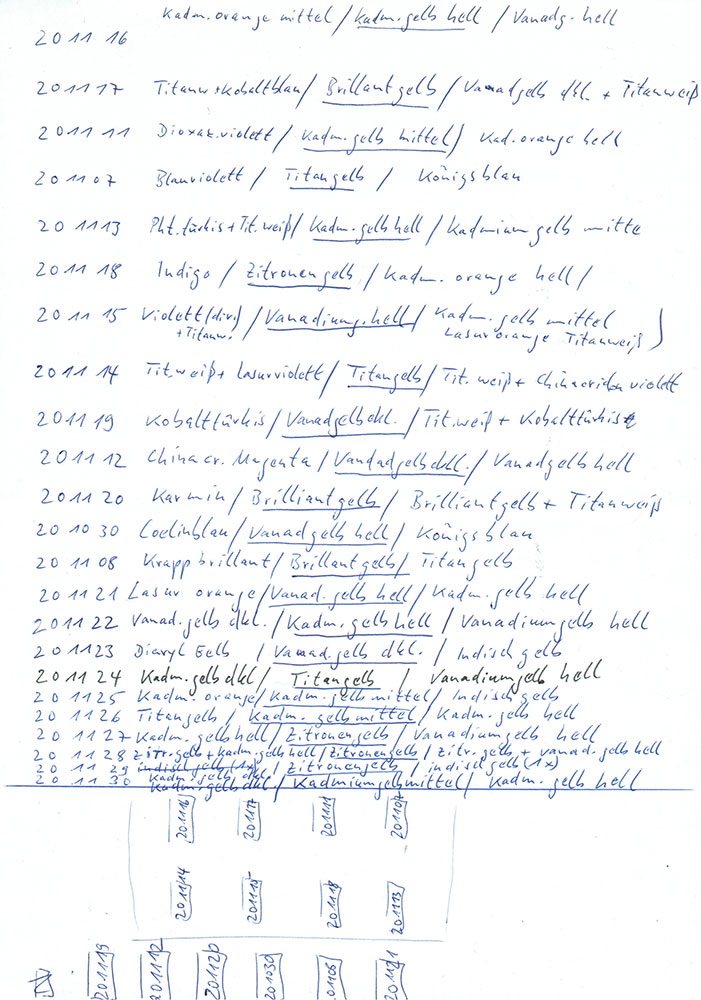 Kadm. orange mittel / Kadm. gelb hell / Vanadg. hell
20 11 16
20 11 17 Titanw + Kobaltblau / Brillantgelb / Vanadgelb dkl. + Titanweiß
20 11 11 Dioxaz. violett / Kadm. gelb mittel / Kad. orange hell
20 11 07 Blauviolett / Titangelb / Königsblau
20 11 13 Pht. türkis + Tit. weiß / Kadm. gelb hell / Kadmium gelb mitte
20 11 18 Indigo / Zitronengelb / Kadm. orange hell /
20 11 15 Violett (div.) / Vanadiumg. hell / Kadm. gelb mittel
+ Titanw. Lasurorange Titanweiß )
20 11 14 Tit.weiß + Lasurviolett / Titangelb / Tit. weiß + Chinacridon violett
20 11 19 Kobalttürkis / Vanadgelb dkl. / Tit.weiß + Kobalttürkis
20 11 12 Chinacr. Magenta / Vandadgelb dkl. / Vanadgelb hell
20 11 20 Karmin / Brilliantgelb / Brilliantgelb + Titanweiß
20 10 30 Coelinblau / Vanadgelb hell / Königsblau
20 11 08 Krapp brillant / Brillantgelb / Titangelb
20 11 21 Lasur orange / Vanad. gelb hell / Kadm. gelb hell
20 11 22 Vanad. gelb dkl. / Kadm. gelb hell / Vanadiumgelb hell
20 11 23 Diaryl Gelb / Vanad. gelb dkl. / Indisch gelb
20 11 24 Kadm. gelb dkl / Titangelb / Vanadiumgelb hell
20 11 25 Kadm. orange / Kadm. gelb mittel / Indisch gelb
20 11 26 Titangelb / Kadm. gelb mittel / Kadm. gelb hell
20 11 27 Kadm. gelb hell / Zitronengelb / Vanadiumgelb hell
20 11 28 Zitr. gelb + Kadm. gelb hell / Zitronengelb / Zitr. gelb + Vanad. gelb hell
20 11 29 indisch gelb (1x) / Zitronengelb / indisch gelb (1x)
Kadm. gelb dkl.
20 11 30 Kadm. gelb dkl / Kadmiumgelb mittel / Kadm. gelb hell
201116 201117 201111 201107
201114 201115 201118 201113
201119 201112 201120 201030 201121